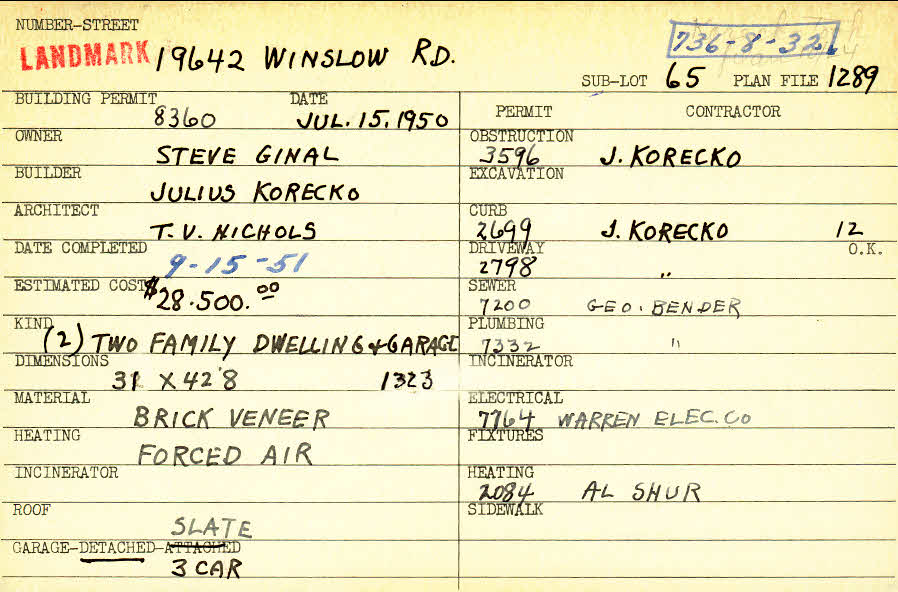 NUMBER-STREET
LANDMARK 19642 WINSLOW RD.
736-8-32
SUB-LOT 65 PLAN FILE 1289
BUILDING PERMIT DATE
8360 JUL. 15, 1950
PERMIT CONTRACTOR
OWNER
STEVE GINAL
OBSTRUCTION
3596 J. KORECKO
BUILDER
JULIUS KORECKO
EXCAVATION
ARCHITECT
T. V. NICHOLS
CURB
2699 J. KORECKO 12
DATE COMPLETED
9-15-51
DRIVEWAY O.K.
2798 "
ESTIMATED COST
$28.500.00
SEWER
7200 GEO. BENDER
KIND
(2) TWO FAMILY DWELLING & GARAGE
PLUMBING
7332 "
DIMENSIONS
31 X 42'8 1323
INCINERATOR
MATERIAL
BRICK VENEER
ELECTRICAL
7764 WARREN ELEC. CO
HEATING
FORCED AIR
FIXTURES
INCINERATOR
HEATING
2084 AL SHUR
ROOF
SLATE
SIDEWALK
GARAGE-DETACHED-ATTACHED
3 CAR